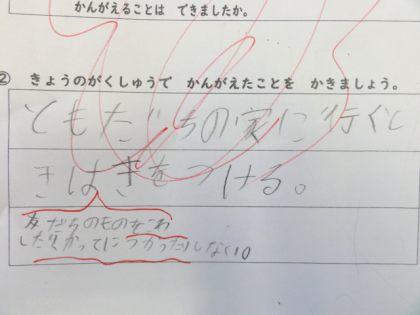 かんがえることは できましたか。
② きょうのがくしゅうで かんがえたことを かきましょう。
ともだちの家に行くと
きはきをつける。
友だちのものをこわ
したりかってにつかったりしない